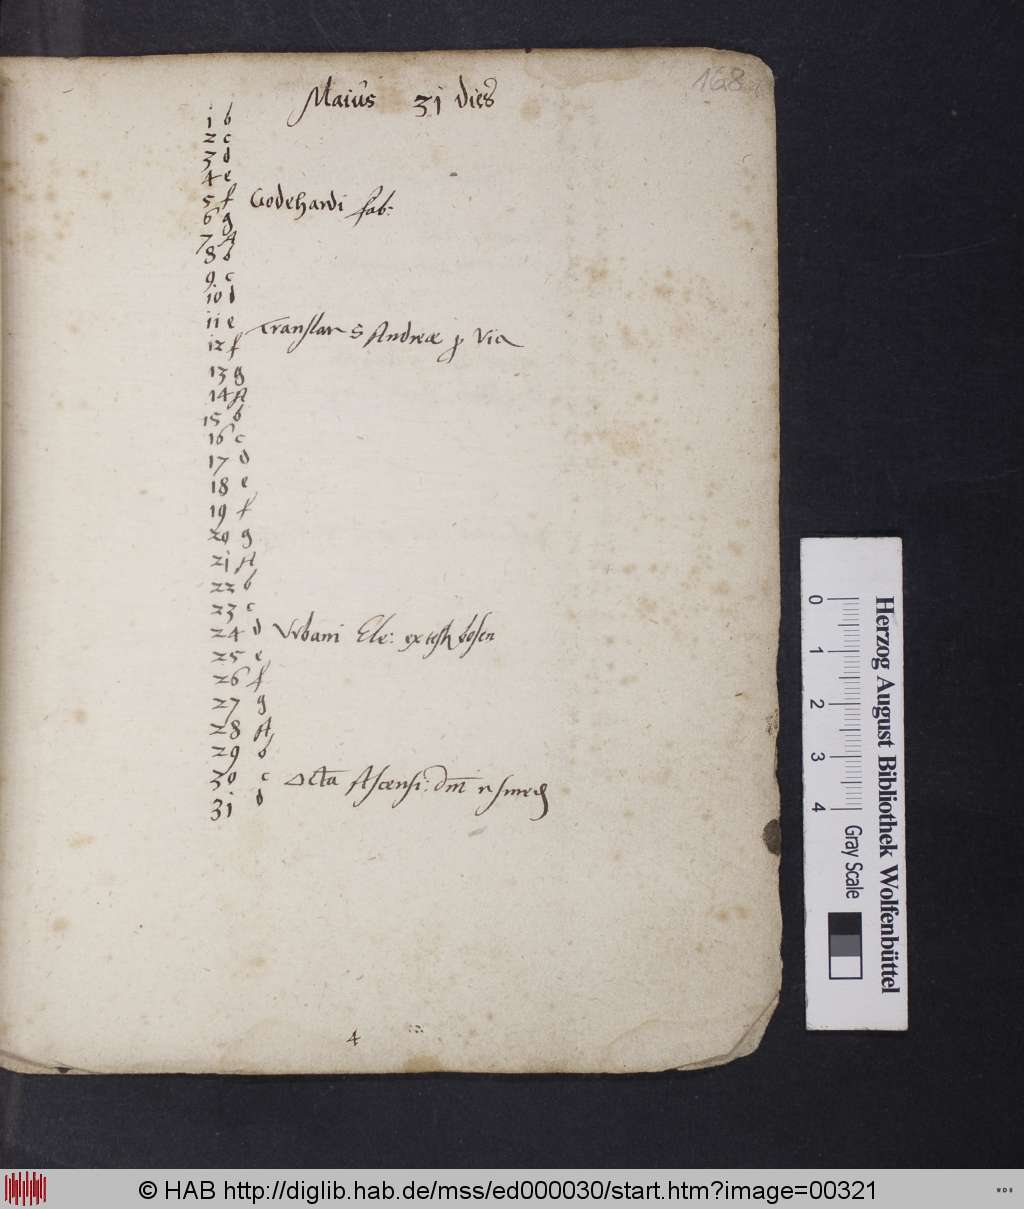 168
Maiůs 31 dies
1 b
2 c
3 d
4 e
5 f Godehardi fab:
6 g
7 A
8 b
9 c
10 d
11 e Translat S Andreæ p Via
12 f
13 g
14 A
15 b
16 c
17 d
18 e
19 f
20 g
21 A
22 b
23 c
24 d Vrbani Ele:
25 e
26 f
27 g
28 A
29 b
30 c Octa Ascensi: Dni
31 d
4
Herzog August Bibliothek Wolfenbüttel
0 1 2 3 4 Gray Scale
© HAB http://diglib.hab.de/mss/ed000030/start.htm?image=00321